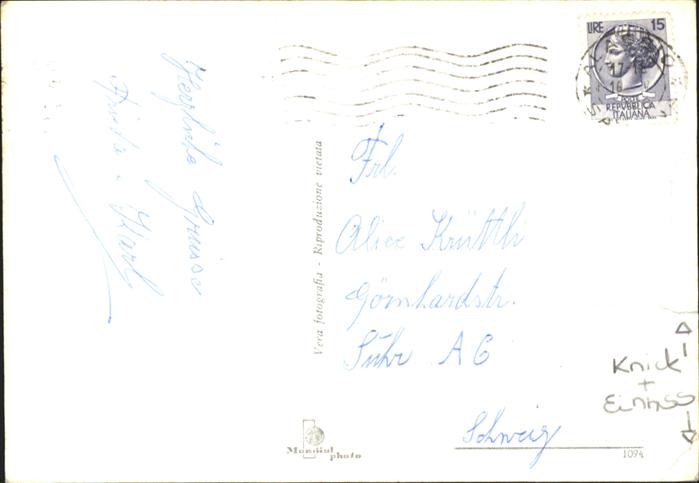 Herzliche Grüsse
Frieda + Karl
LIRE 15
POSTE
REPUBBLICA
ITALIANA
17
16
Vera fotografia - Riproduzione vietata
Frl.
Alice Krüttli
Gönhardstr.
Suhr AG
Schweiz
Mondial photo
1094
Knick
+
Einriss